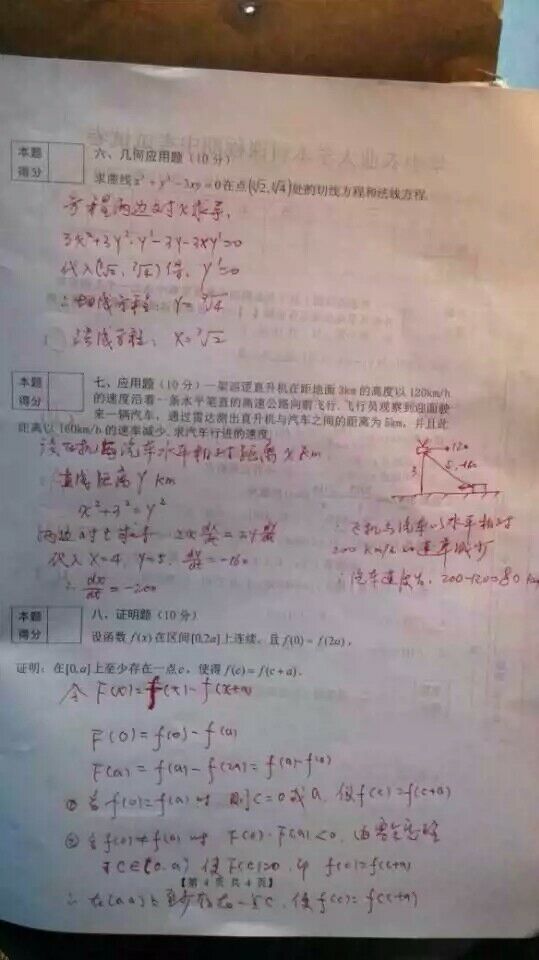 本题
得分
六、几何应用题(10分)
求曲线x³+y³-3xy=0在点(∛2,∛4)处的切线方程和法线方程.
方程两边对x求导,
3x²+3y²·y'-3y-3xy'=0
代入(∛2,∛4)得, y'=0
∴切线方程: y=∛4
法线方程: x=∛2
本题
得分
七、应用题(10分)一架巡逻直升机在距地面3km的高度以120km/h
的速度沿着一条水平笔直的高速公路向前飞行.飞行员观察到迎面驶
来一辆汽车,通过雷达测出直升机与汽车之间的距离为5km,并且此
距离以160km/h的速率减少.求汽车行进的速度.
汽车水平相对距离x km
直线距离y km
x²+3²=y²
两边对t求导 2x dx/dt=2y dy/dt
代入x=4, y=5, dy/dt=-160
∴dx/dt=-200
120
3
5,-160
∴飞机与汽车以水平相对
200 km/h的速率减少
∴汽车速度为: 200-120=80 km
本题
得分
八、证明题(10分)
设函数f(x)在区间[0,2a]上连续,且f(0)=f(2a),
证明:在[0,a]上至少存在一点c,使得f(c)=f(c+a).
令F(x)=f(x)-f(x+a)
F(0)=f(0)-f(a)
F(a)=f(a)-f(2a)=f(a)-f(0)
① 当f(0)=f(a)时 则c=0或a, 使f(c)=f(c+a)
② 当f(0)≠f(a)时 F(0)·F(a)<0, 由零点定理
∃c∈(0,a) 使F(c)=0, 即 f(c)=f(c+a)
【第 4 页 共 4 页】
∴在[0,a]上至少存在一点c, 使f(c)=f(c+a)